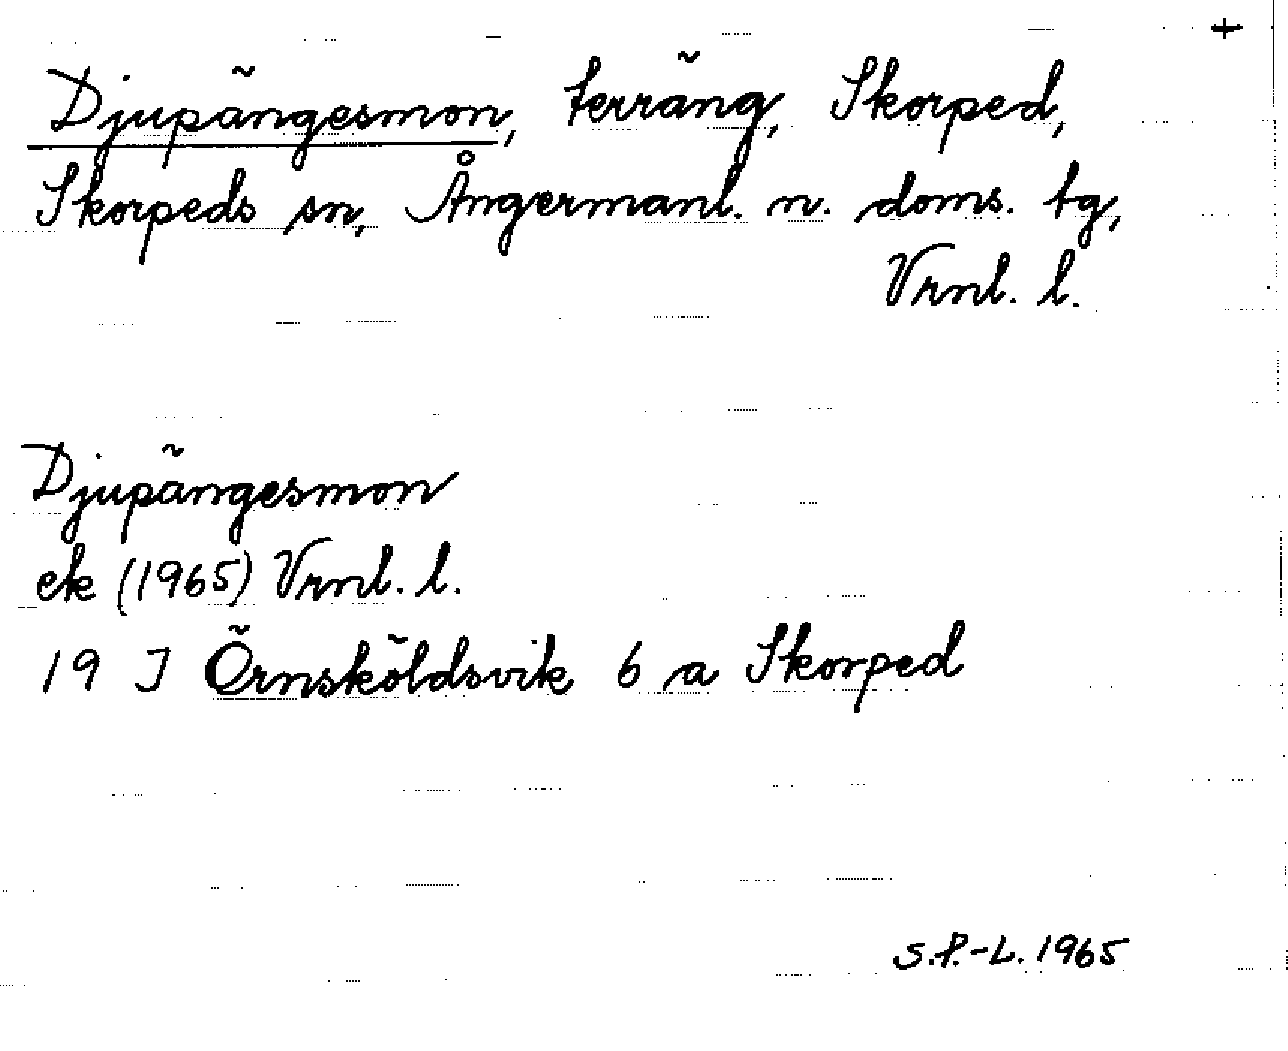 +
Djupängesmon, terräng, Skorped,
Skorpeds sn, Ångermanl. n. doms. tg,
Vrnl. l.
Djupängesmon
ek (1965) Vrnl. l.
19 J Örnsköldsvik 6 a Skorped
S.P.-L. 1965